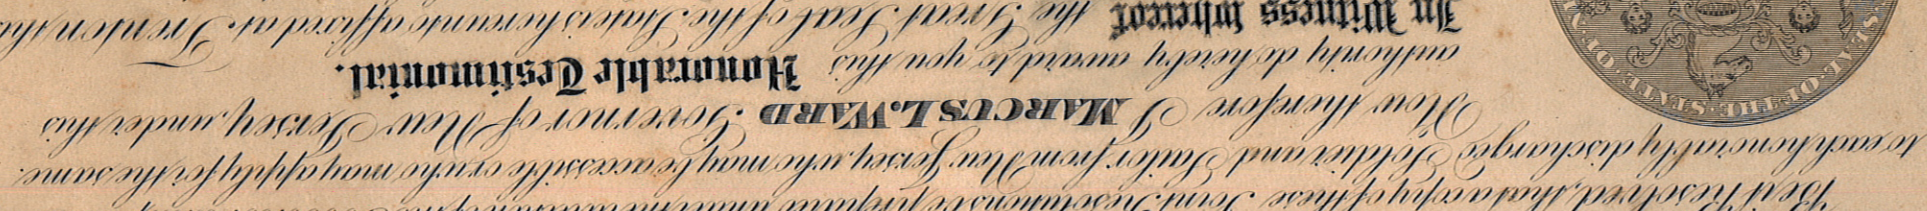 Be it Resolved, that a copy of these Joint Resolutions be prepared under the direction of the
to each honorably discharged Soldier and Sailor from New Jersey, who may be accessible or who may apply for the same.
Now therefore I MARCUS L. WARD Governor of New Jersey, under this
authority do hereby award to you this Honorable Testimonial.
In Witness whereof the Great Seal of the State is hereunto affixed at Trenton this
SEAL OF THE STATE OF